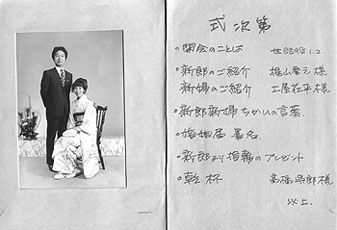 式次第
・開会のことば 世話役
・新郎のご紹介 様
新婦のご紹介 土屋 様
・新郎新婦ちかいの言葉
・婚姻届署名
・新郎より指輪のプレゼント
・乾杯 高橋 郎様
以上.